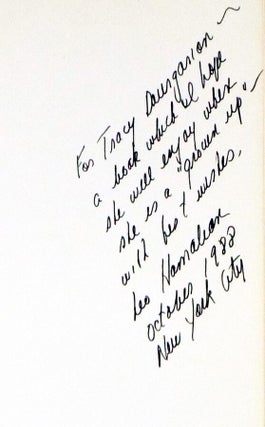 For Tracy Dousgarian ~
a book which I hope
she will enjoy when
she is a "grown up"~
with best wishes,
Leo Hamalian
October 1988
New York City